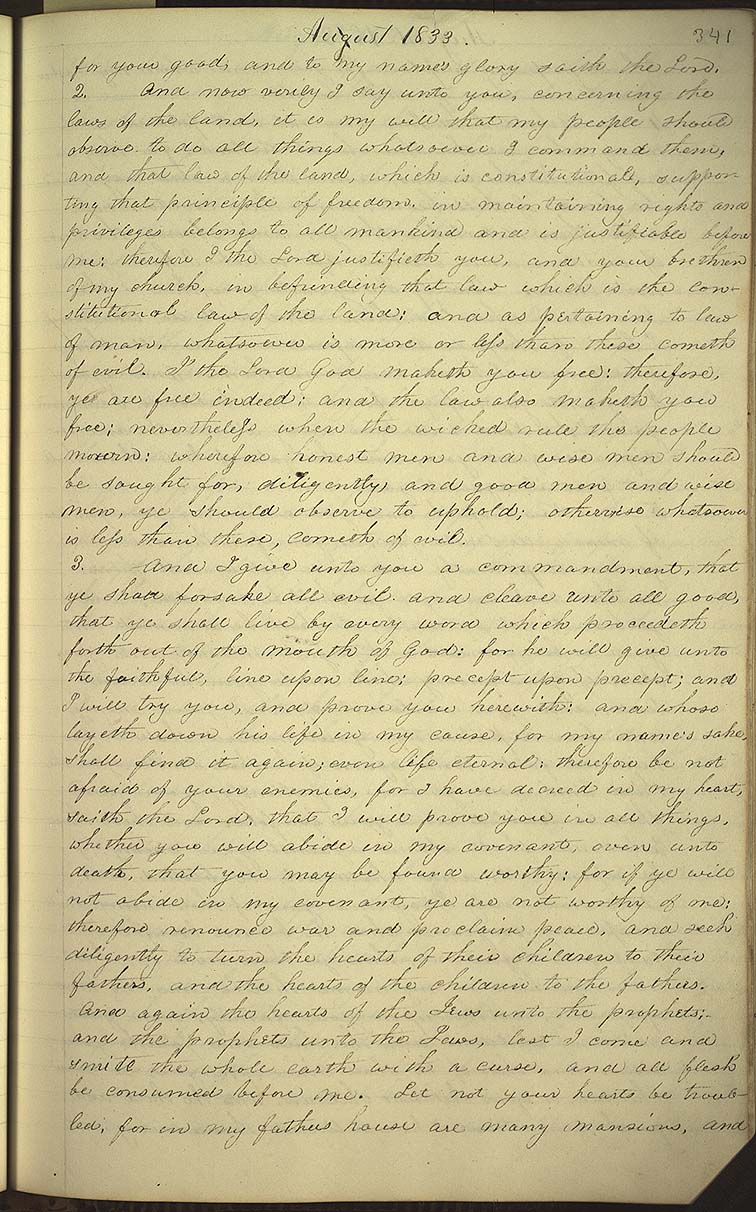 August 1833.
341
for your good, and to my name's glory saith the Lord.
2. And now verily I say unto you, concerning the
laws of the land, it is my will that my people should
observe to do all things whatsoever I command them,
and that law of the land, which is constitutional, suppor-
ting that principle of freedom, in maintaining rights and
privileges belongs to all mankind and is justifiable before
me: therefore I the Lord justifieth you, and your brethren
of my church, in befrinding that law which is the con-
stitutional law of the land: and as pertaining to law
of man, whatsoever is more or less than these cometh
of evil. I the Lord God maketh you free: therefore,
ye are free indeed: and the law also maketh you
free; nevertheless when the wicked rule the people
mourn: wherefore honest men and wise men should
be saught for, diligently, and good men and wise
men, ye should observe to uphold; otherwise whatsoever
is less than these, cometh of evil.
3. And I give unto you a commandment, that
ye shall forsake all evil and cleave unto all good,
that ye shall live by every word which proceedeth
forth out of the mouth of God: for he will give unto
the faithful, line upon line: precept upon precept; and
I will try you, and prove you herewith: and whoso
layeth down his life in my cause, for my name's sake,
shall find it again; even life eternal: therefore be not
afraid of your enemies, for I have decreed in my heart,
saith the Lord, that I will prove you in all things,
whether you will abide in my covenant, even unto
death, that you may be found worthy: for if ye will
not abide in my covenant, ye are not worthy of me:
therefore renounce war and proclaim peace, and seek
diligently to turn the hearts of their children to their
fathers, and the hearts of the children to the fathers.
And again the hearts of the Jews unto the prophets;
and the prophets unto the Jews, lest I come and
smite the whole earth with a curse, and all flesh
be consumed before me. Let not your hearts be troub-
led, for in my fathers house are many mansions, and